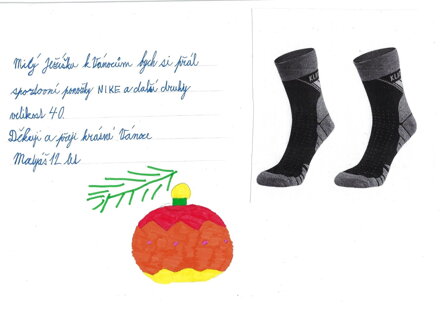 Milý Ježíšku k Vánocům bych si přál
sportovní ponožky NIKE a další druhy
velikost 40.
Děkuji a přeji krásné Vánoce
Matyáš 12 let